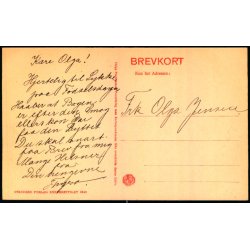 Kære Olga!
Hjertelig til Lykke
paa Fødselsdagen
Haaber at Bogen
er efter din Smag
ellers kan du
faa den byttet
Du skal snart
faa Brev fra mig
Mange Hilsner
fra
Din hengivne
BREVKORT
(Kun for Adressen)
Frk Olga Jensen